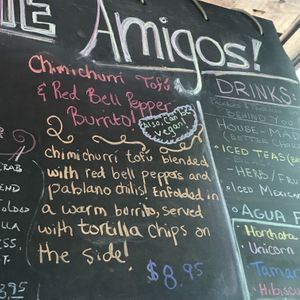 Amigos!
Chimichurri Tofu
& Red Bell Pepper
Burrito!
Also, Can be
vegan
chimichurri tofu blended
with red bell peppers and
pablano chilis! Enfolded in
a warm burrito, served
with tortilla chips on
the side!
$8.95
DRINKS
BEHIND YOU
HOUSE MAR
ICED TEAS
HERB/FRU
ICED MEXICA
AGUA F
Horchata
Unicorn
Tamar
Hibiscu